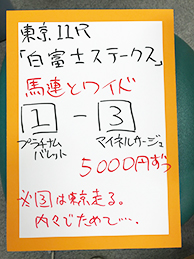 東京11R
「白富士ステークス」
馬連とワイド
1 - 3
プラチナム マイネルカージュ
バレット
5000円ずつ
※3は東京走る。
内々でためて…。